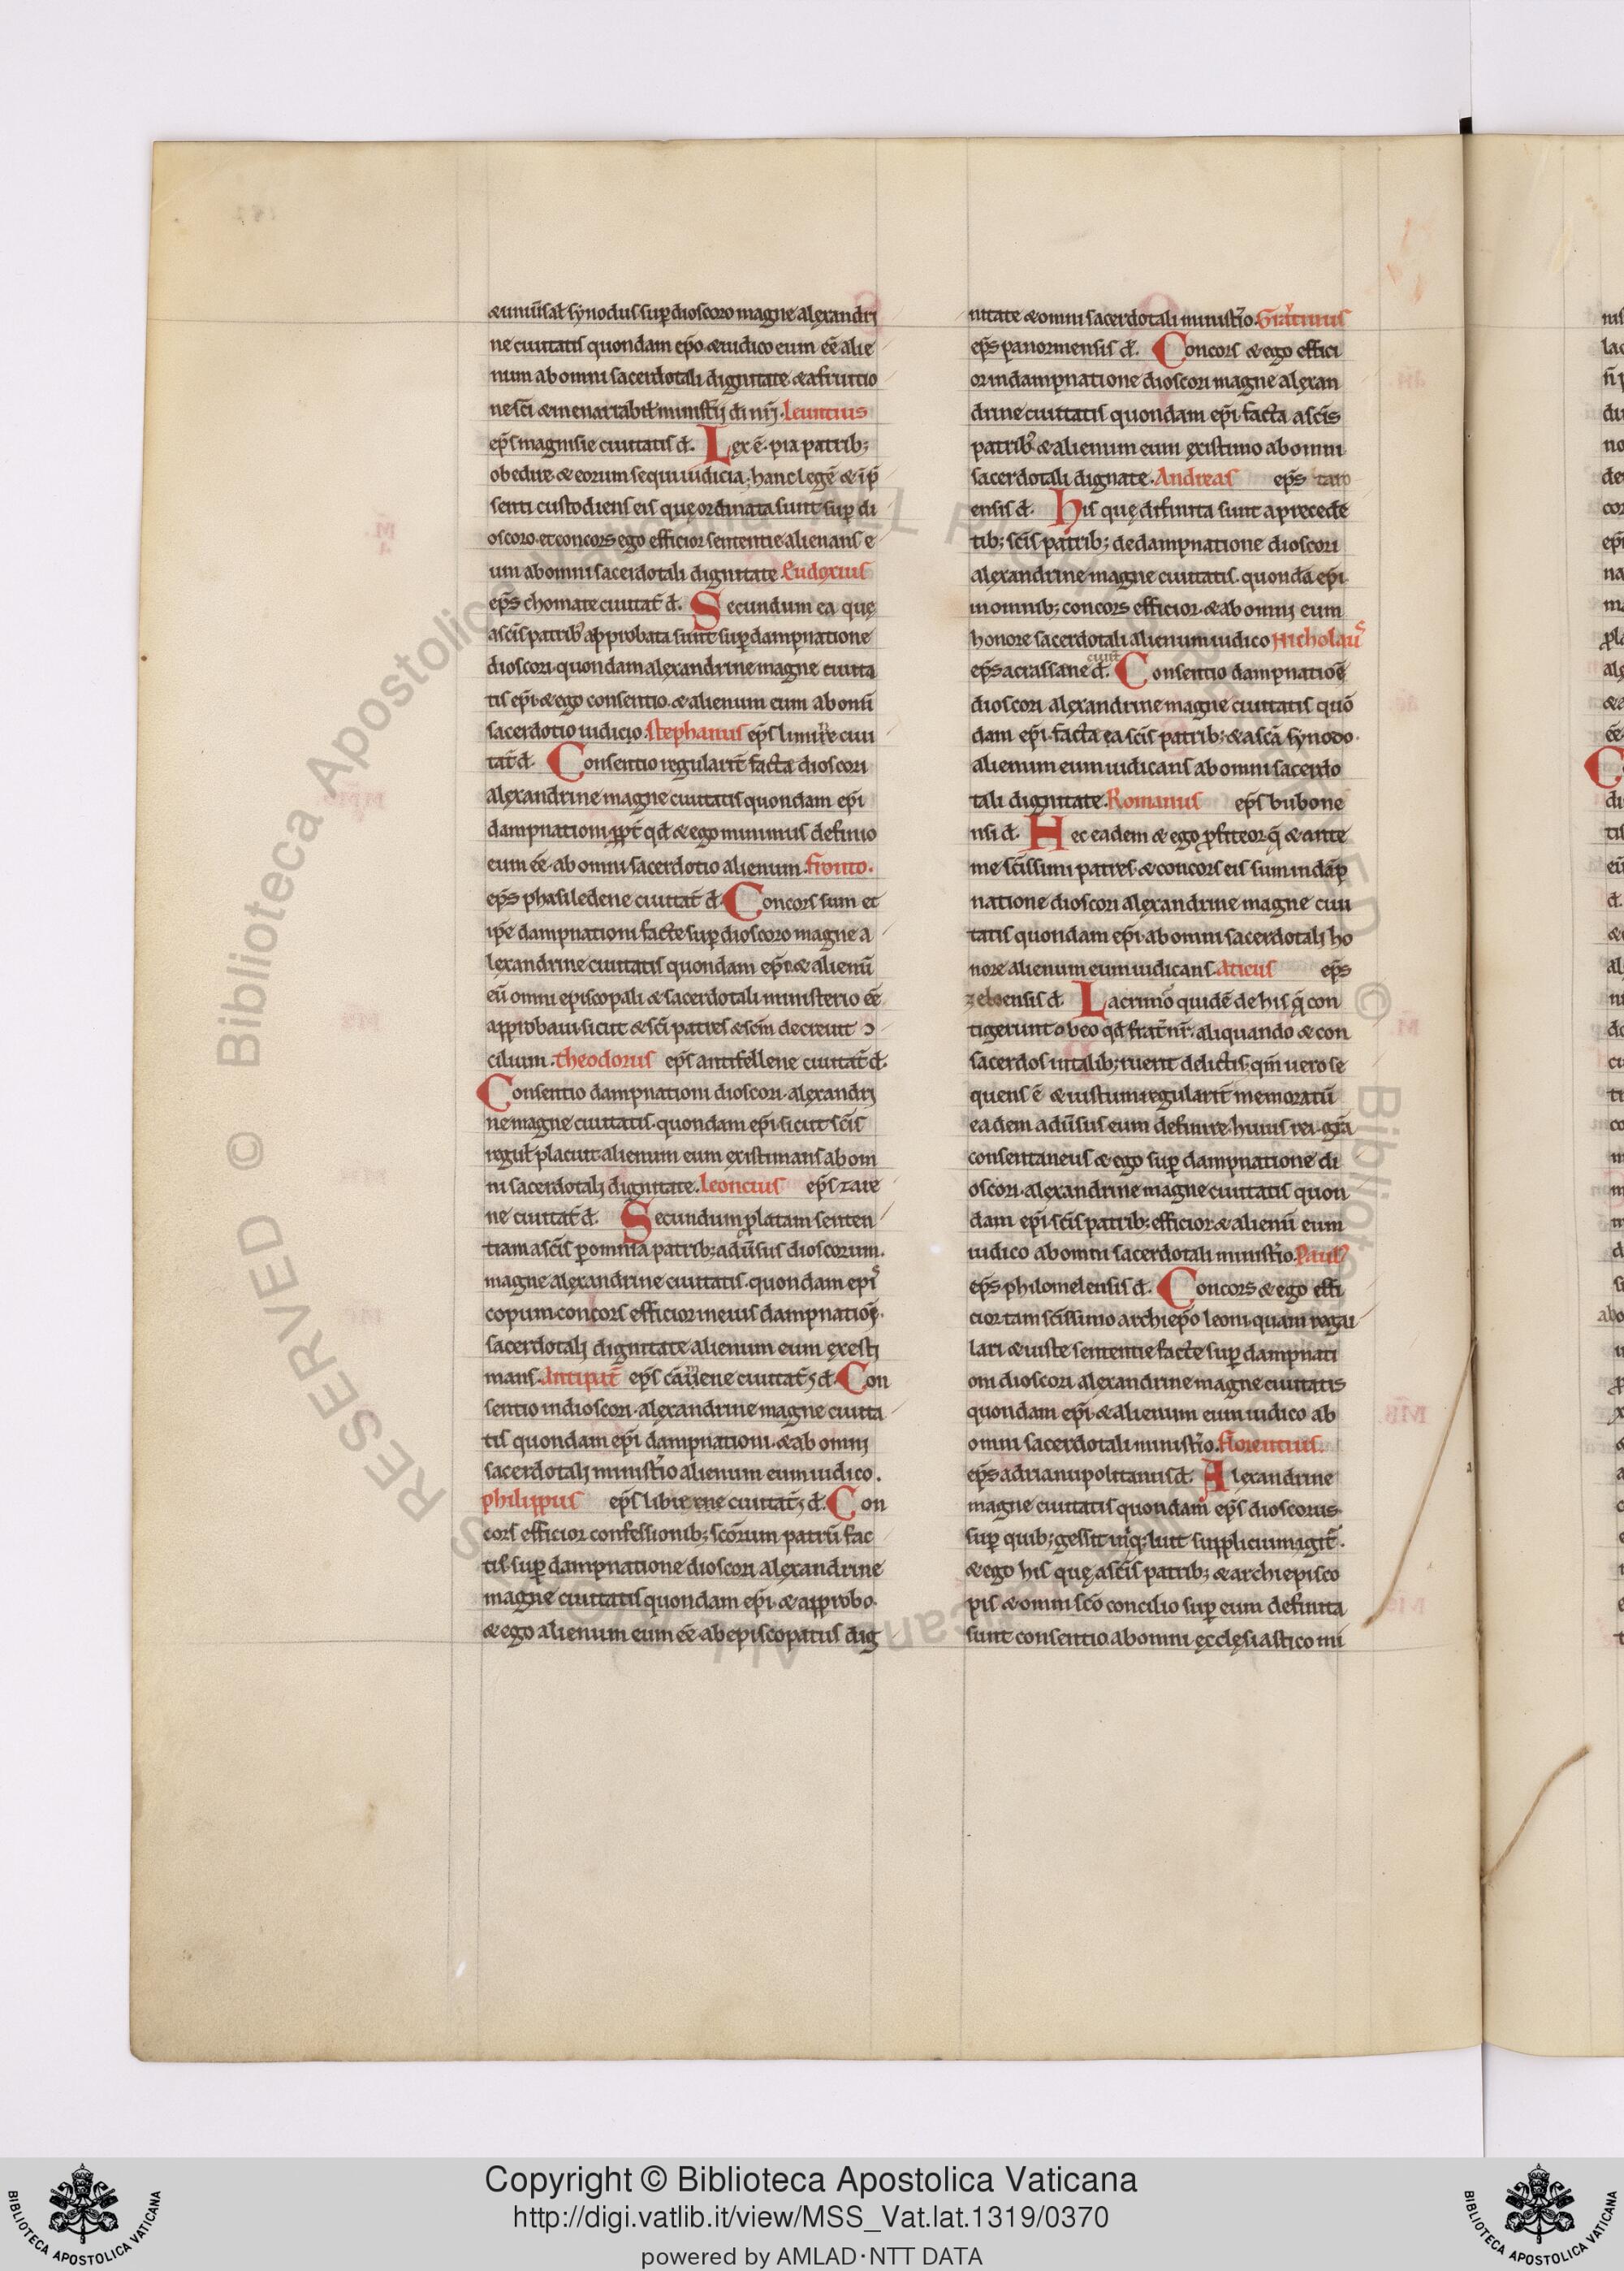 &uniũsał synodus sup dioscoro magne alęxandri
ne ciuitatis quondam ep̃o &iudico eum eẽ alie
num ab omni sacerdotali dignitate &afruitio
ne sc̃i &menarrabił minist̃ij dñi nr̃i. Leuntius
ep̃s magnisie ciuitatis d̃. Lex ẽ. pia patrib;
obedire &eorum sequi iudicia; hanc legẽ & ip̃
senti custodiens eis quę ordinata sunt sup di
oscoro. et concors ego efficior sententie alienans e
um ab omni sacerdotali dignitate. Eudoxius
ep̃s chomate ciuitat̃ d̃. Secundum ea quę
a sc̃is patrib' approbata sunt sup dampnatione
dioscori. quondam alexandrine magne ciuita
tis ep̃i. &ego consentio. &alienum eum ab om̃i
sacerdotio iudicio. Stephanus ep̃s limire ciui
tat̃ d̃. Consentio regularit̃ facta dioscori
alęxandrine magne ciuitatis quondam ep̃i
dampnationi ppt̃ qd̃ &ego minimus definio
eum eẽ. ab omni sacerdotio alienum. Fronto.
ep̃s phasiledene ciuitat̃ d̃. Concors sum et
ip̃e dampnationi facte sup dioscoro magne a
lexandrine ciuitatis quondam ep̃i. &alienũ
eũ omni episcopali &sacerdotali ministerio eẽ
approbaui sicut &sc̃i patres &sc̃m decreuit ɔ
cilium. Theodorus ep̃s antifellene ciuitat̃ d̃.
Consentio dampnationi dioscori. alęxandrj
ne magne ciuitatis. quondam ep̃i. sicut sc̃is
reguł placuit alienum eum existimans ab om
ni sacerdotalj dignitate. Leoncius ep̃s zare
ne ciuitat̃ d̃. Secundum platam senten
tiam a sc̃is p omnia patrib; adũsus dioscorum.
magne alęxandrine ciuitatis. quondam epis
copum. concors efficior in eius dampnatiõe.
sacerdotalj dignitate alienum eum exesti
mans. Antipat̃ ep̃s ciuitat̃ d̃. Con
sentio in dioscori. alęxandrine magne ciuita
tis quondam ep̃i dampnationi. &ab omnj
sacerdotalj minist̃io alienum eum iudico.
Philippus ep̃s ciuitat̃ d̃. Con
cors efficior confessionib; sc̃orum patrũ fac
tis. sup dampnatione dioscori alęxandrine
magne ciuitatis quondam ep̃i. &approbo.
&ego alienum eum eẽ ab episcopatus dig
nitate &omni sacerdotali minist̃io.
ep̃s panormensis d̃. Concors &ego effici
or in dampnatione dioscori magne alęxan
drine ciuitatis quondam ep̃i. facta a sc̃is
patrib' &alienum eum ęxistimo ab omni
sacerdotali dignate. Andreas ep̃s
ensis d̃. His quę difinita sunt a precedẽ
tib; sc̃is patrib; de dampnatione dioscori
alęxandrine magne ciuitatis. quondã ep̃i.
in omnib; concors efficior. &ab omnj eum
honore sacerdotali alienum iudico Nicholaus
ep̃s acrassane ciuit̃ d̃. Consentio dampnatiõe
dioscori alęxandrine magne ciuitatis quõ
dam ep̃i. facta ea sc̃is patrib; &a sc̃a synodo.
alienum eum iudicans ab omni sacerdo
tali dignitate. Romanus ep̃s bubone
nsi d̃. Hec eadem &ego pfiteor q̃ &ante
me sc̃issimi patres. &concors eis sum in dãp
natione dioscori alęxandrine magne ciui
tatis quondam ep̃i. ab omni sacerdotalj ho
nore alienum eum iudicans. Aticus ep̃s
zeloensis d̃. Lacrimo quidẽ de his q̃ con
tigerunt ob eo qd̃ frat̃ nr̃. aliquando &con
sacerdos in talib; ruerit delictis; qm̃ uero se
quens ẽ &iustum regularit̃ memoratũ
eadem adũsus eum definire. huius rei. gr̃a
consentaneus &ego sup dampnatione di
oscori. alęxandrine magne ciuitatis quon
dam ep̃i. sc̃is patrib; efficior &alienũ eum
iudico ab omni sacerdotali minist̃io. Paul'
ep̃s philomelensis d̃. Concors &ego effi
cior tam sc̃issimo archiep̃o leoni. quam regu
lari &iuste sententie facte sup dampnati
oni dioscori alęxandrine magne ciuitatis
quondam ep̃i. &alienum eum iudico ab
omni sacerdotali minist̃io. Florentius.
ep̃s adrianupolitanus d̃. Alexandrine
magne ciuitatis quondam ep̃s dioscorus
sup quib; gessit iniq; luit supplicium igit̃.
&ego his quę a sc̃is patrib; &archiepisco
pis &omni sc̃o concilio sup eum definita
sunt consentio. ab omni ęcclęsiastico mi
© Biblioteca Apostolica Vaticana ALL RIGHTS RESERVED
Copyright © Biblioteca Apostolica Vaticana
http://digi.vatlib.it/view/MSS_Vat.lat.1319/0370
powered by AMLAD·NTT DATA
BIBLIOTECA APOSTOLICA VATICANA
BIBLIOTECA APOSTOLICA VATICANA